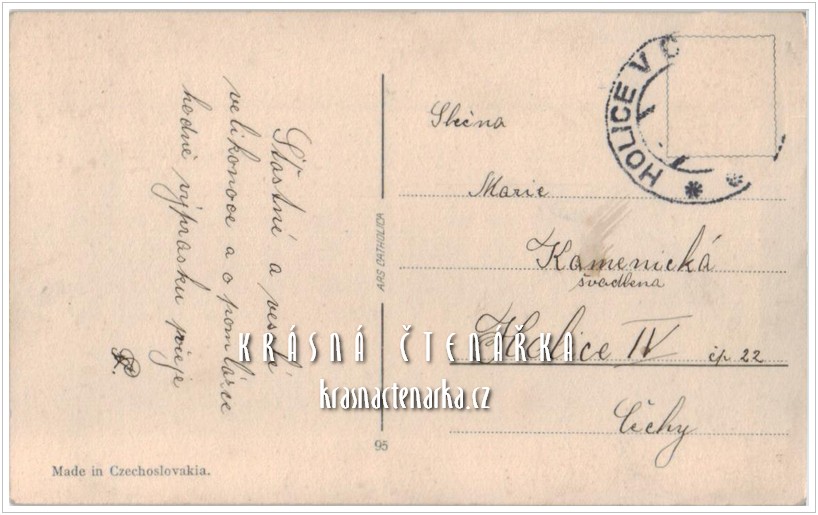 Šťastné a veselé
velikonoce a o pomlázce
hodně výprasku přeje
HOLICE V Č
Slečna
Marie
Kamenická
švadlena
Holice IV čp 22
Čechy
ARS CATHOLICA
95
Made in Czechoslovakia.
KRÁSNÁ ČTENÁŘKA
krasnactenarka.cz